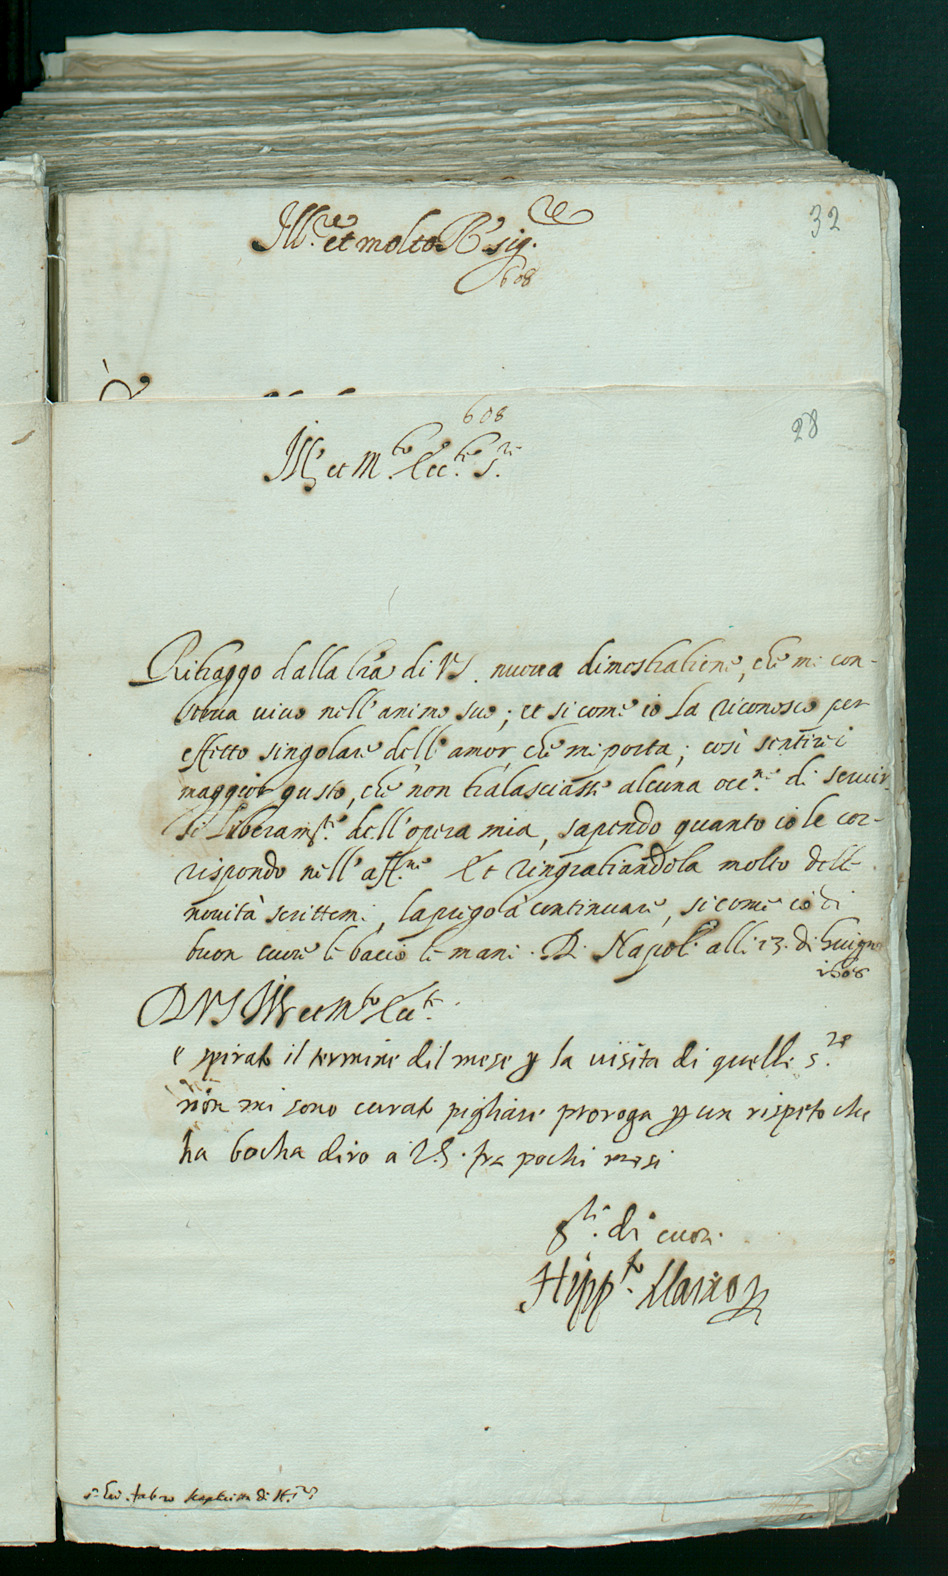 32
Ill.re et molto R.' sig.re
608
608
28
Ill.' et M.to Ecc.te S.re
Rithaggo dalla lrã di VS. nuova dimostratione, che mi con-
serva vivo nell'animo suo; et sicome io la riconosco per
effetto singolare dell' amor, che mi porta; così sentirei
maggior gusto, che non tralasciasse alcuna occ.ne di servir-
si liberam.te dell'opera mia, sapendo quanto io le cor-
rispondo nell'aff.ne Et ringratiandola molto delle
novità scrittemi, la prego à continuare, sicome io di
buon cuore le bacio le mani. Di Napoli alli 13. di Giugno
1608
D VS Ill.re et M.to Ecc.te
e spirato il termine dil mese p la visita di quelli s.re
non mi sono curato pigliare proroga p un rispeto che
ha bocha diro a VS. fra pochi mesi
di cuore
Hipp.to